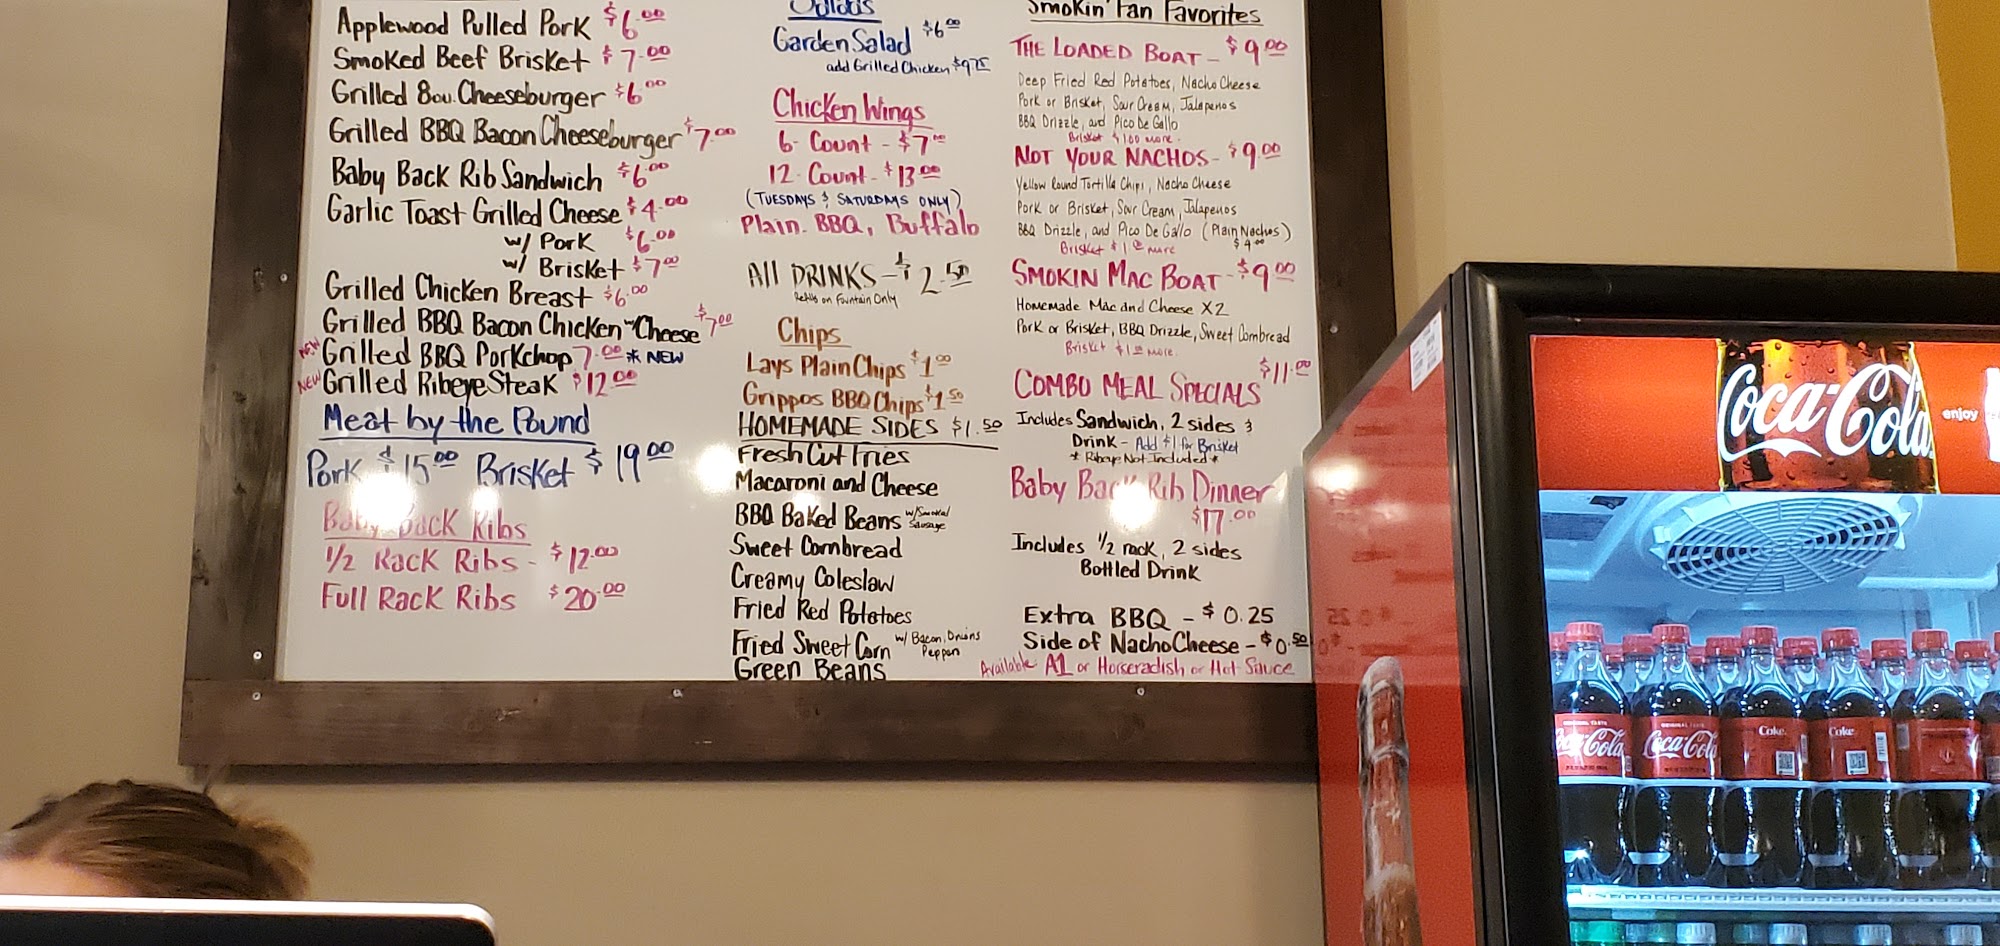 Applewood Pulled Pork $6.00
Smoked Beef Brisket $7.00
Grilled 8ou. Cheeseburger $6.00
Grilled BBQ Bacon Cheeseburger $7.00
Baby Back Rib Sandwich $6.00
Garlic Toast Grilled Cheese $4.00
w/ Pork $6.00
w/ Brisket $7.00
Grilled Chicken Breast $6.00
Grilled BBQ Bacon Chicken Cheese $7.00
NEW Grilled BBQ Porkchop 7.00 * NEW
NEW Grilled Ribeye Steak $12.00
Meat by the Pound
Pork $15.00 Brisket $19.00
Baby Back Ribs
1/2 Rack Ribs - $12.00
Full Rack Ribs $20.00
Salads
Garden Salad $6.00
add Grilled Chicken $9.75
Chicken Wings
6 - Count - $7.00
12 - Count - $13.00
(Tuesdays & Saturdays Only)
Plain, BBQ, Buffalo
All Drinks - $2.50
Refills on Fountain Only
Chips
Lays Plain Chips $1.00
Grippos BBQ Chips $1.50
Homemade Sides $1.50
Fresh Cut Fries
Macaroni and Cheese
BBQ Baked Beans w/Smoked
Sausage
Sweet Cornbread
Creamy Coleslaw
Fried Red Potatoes
Fried Sweet Corn w/ Bacon, Onions
Pepper
Green Beans
Smokin' Fan Favorites
The Loaded Boat - $9.00
Deep Fried Red Potatoes, Nacho Cheese
Pork or Brisket, Sour Cream, Jalapenos
BBQ Drizzle, and Pico De Gallo
Brisket $1.00 more.
Not Your Nachos - $9.00
Yellow Round Tortilla Chips, Nacho Cheese
Pork or Brisket, Sour Cream, Jalapenos
BBQ Drizzle, and Pico De Gallo (Plain Nachos)
$4.00
Brisket $1.00 more
Smokin Mac Boat - $9.00
Homemade Mac and Cheese X2
Pork or Brisket, BBQ Drizzle, Sweet Cornbread
Brisket $1.00 more.
Combo Meal Specials $11.00
Includes Sandwich, 2 sides &
Drink - Add $1 for Brisket
* Ribeye Not Included *
Baby Back Rib Dinner
$17.00
Includes 1/2 rack, 2 sides
Bottled Drink
Extra BBQ - $0.25
Side of Nacho Cheese - $0.50
Available A1 or Horseradish or Hot Sauce
Coca-Cola
enjoy
Coca-Cola
Coca-Cola
Coke
Coke